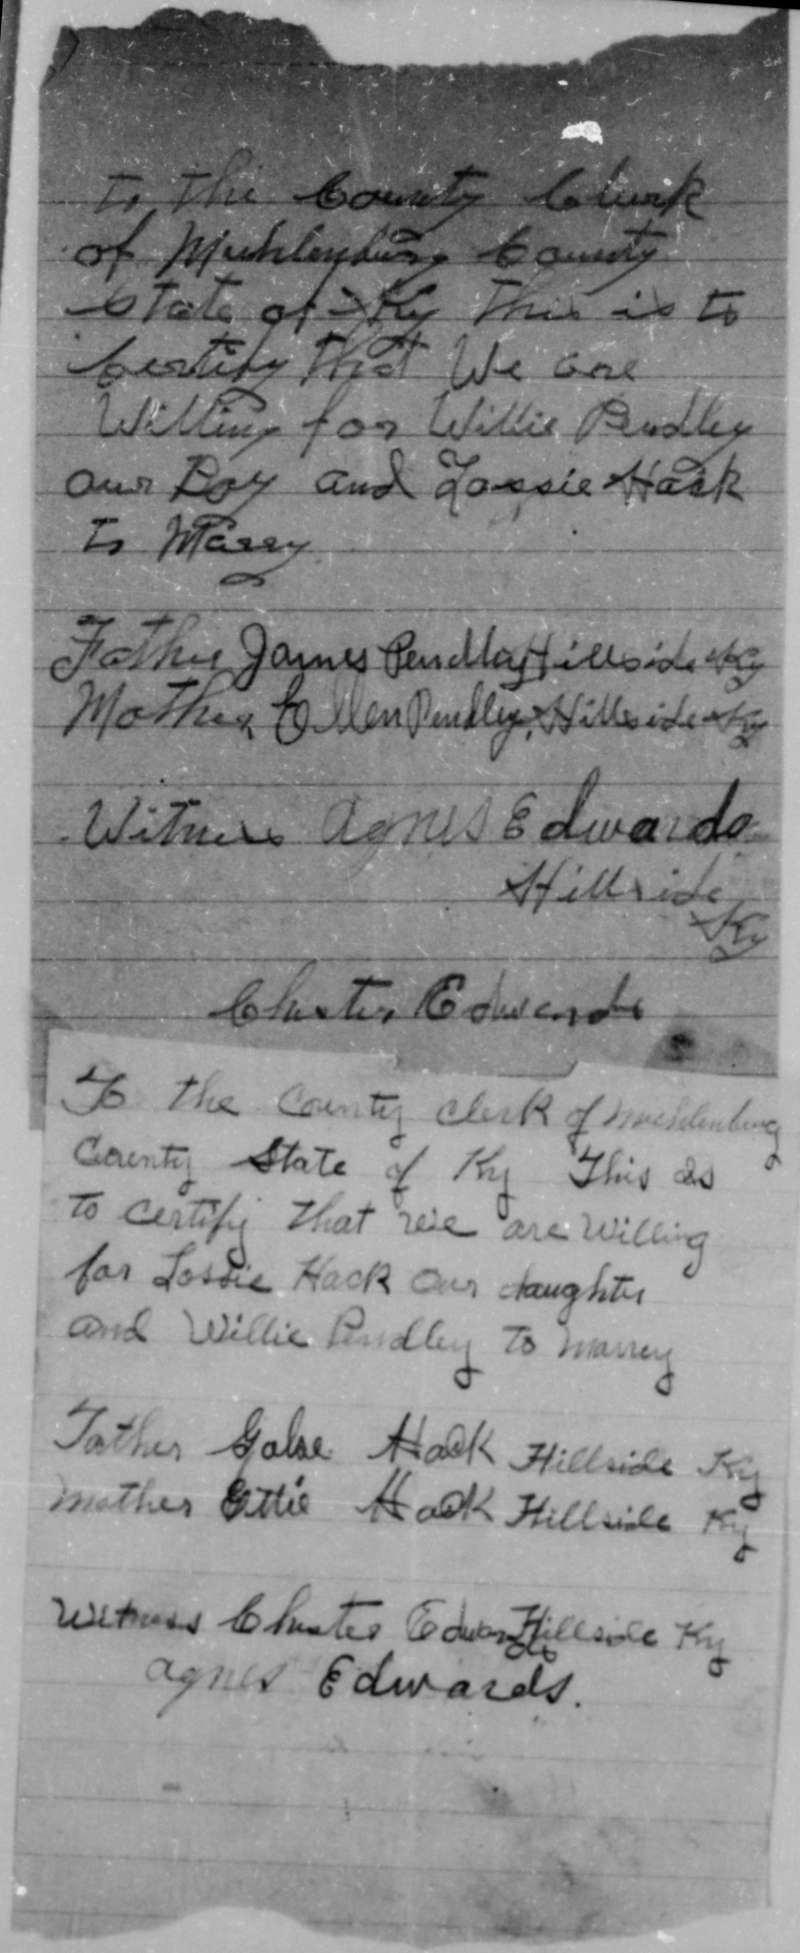 to the County Clurk
of Muhlenburg County
State of Ky This is to
Certify that We are
Willing for Willie Pendley
our Boy and Lossie Hack
to Marry
Father James Pendley Hillside Ky
Mother, Ellen Pendley, Hillside Ky
Witness Agnes Edwards
Hillside
Ky
Chester Edwards
To the County Clerk of Muehlenburg
County State of Ky This is
to certify that we are Willing
for Lossie Hack our daughter
and Willie Pendley to marrey
Father Gabe Hack Hillside Ky
Mother Ettie Hack Hillside Ky
Witness Chester Edwards Hillside Ky
Agnes Edwards.